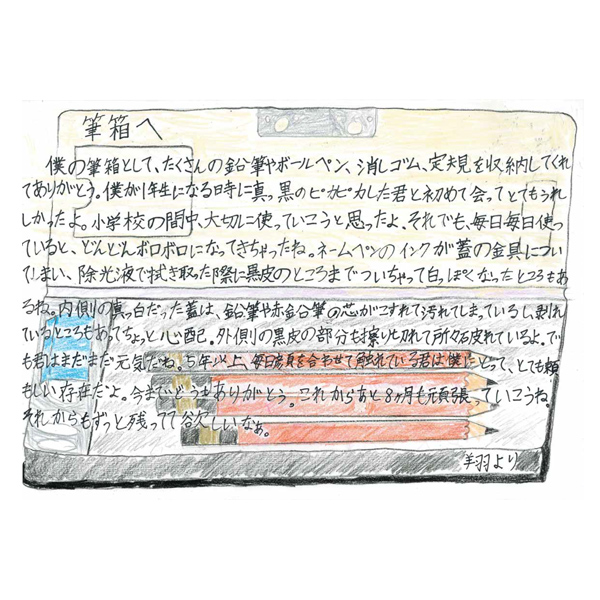 筆箱へ
僕の筆箱として、たくさんの鉛筆やボールペン、消しゴム、定規を収納してくれ
てありがとう。僕が1年生になる時に真っ黒のピカピカした君と初めて会ってとてもうれ
しかったよ。小学校の間中、大切に使っていこうと思ったよ、それでも、毎日毎日使っ
ていると、どんどんボロボロになってきちゃったね。ネームペンのインクが蓋の金具につい
てしまい、除光液で拭き取った際に黒皮のところまでついちゃって白っぽくなったところもあ
るね。内側の真っ白だった蓋は、鉛筆や赤鉛筆の芯がこすれて汚れてしまっているし、剥れ
ているところもあってちょっと心配。外側の黒皮の部分も擦り切れて所々破れているよ。で
も君はまだまだ元気だね。5年以上、毎日顔を合わせて触れている君は僕にとって、とても頼
もしい存在だよ。今までどうもありがとう。これからあと8ヶ月も頑張っていこうね。
それからもずっと残ってて欲しいなぁ。
羊羽より